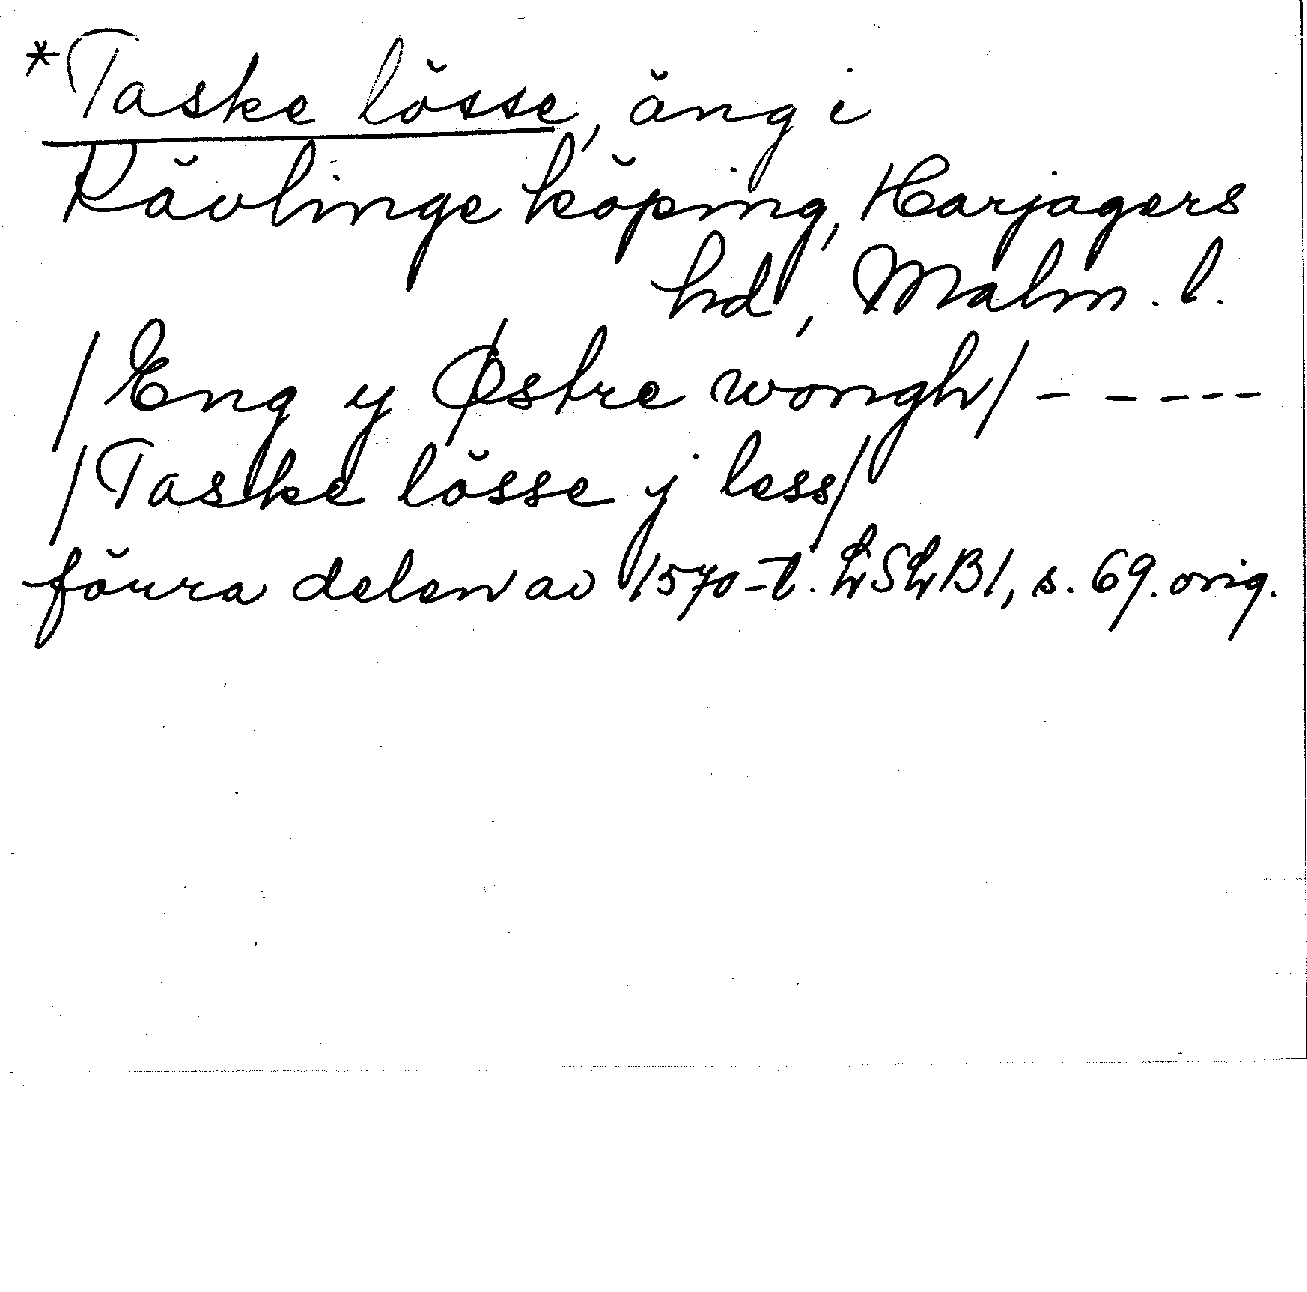 *Taske lösse, äng i
Kävlinge köping, Harjagers
hd, Malm. l.
/Eng y Østre wongh/ - - - - -
/Taske lösse y less/
förra delen av 1570-t. LSLB1, s. 69. orig.